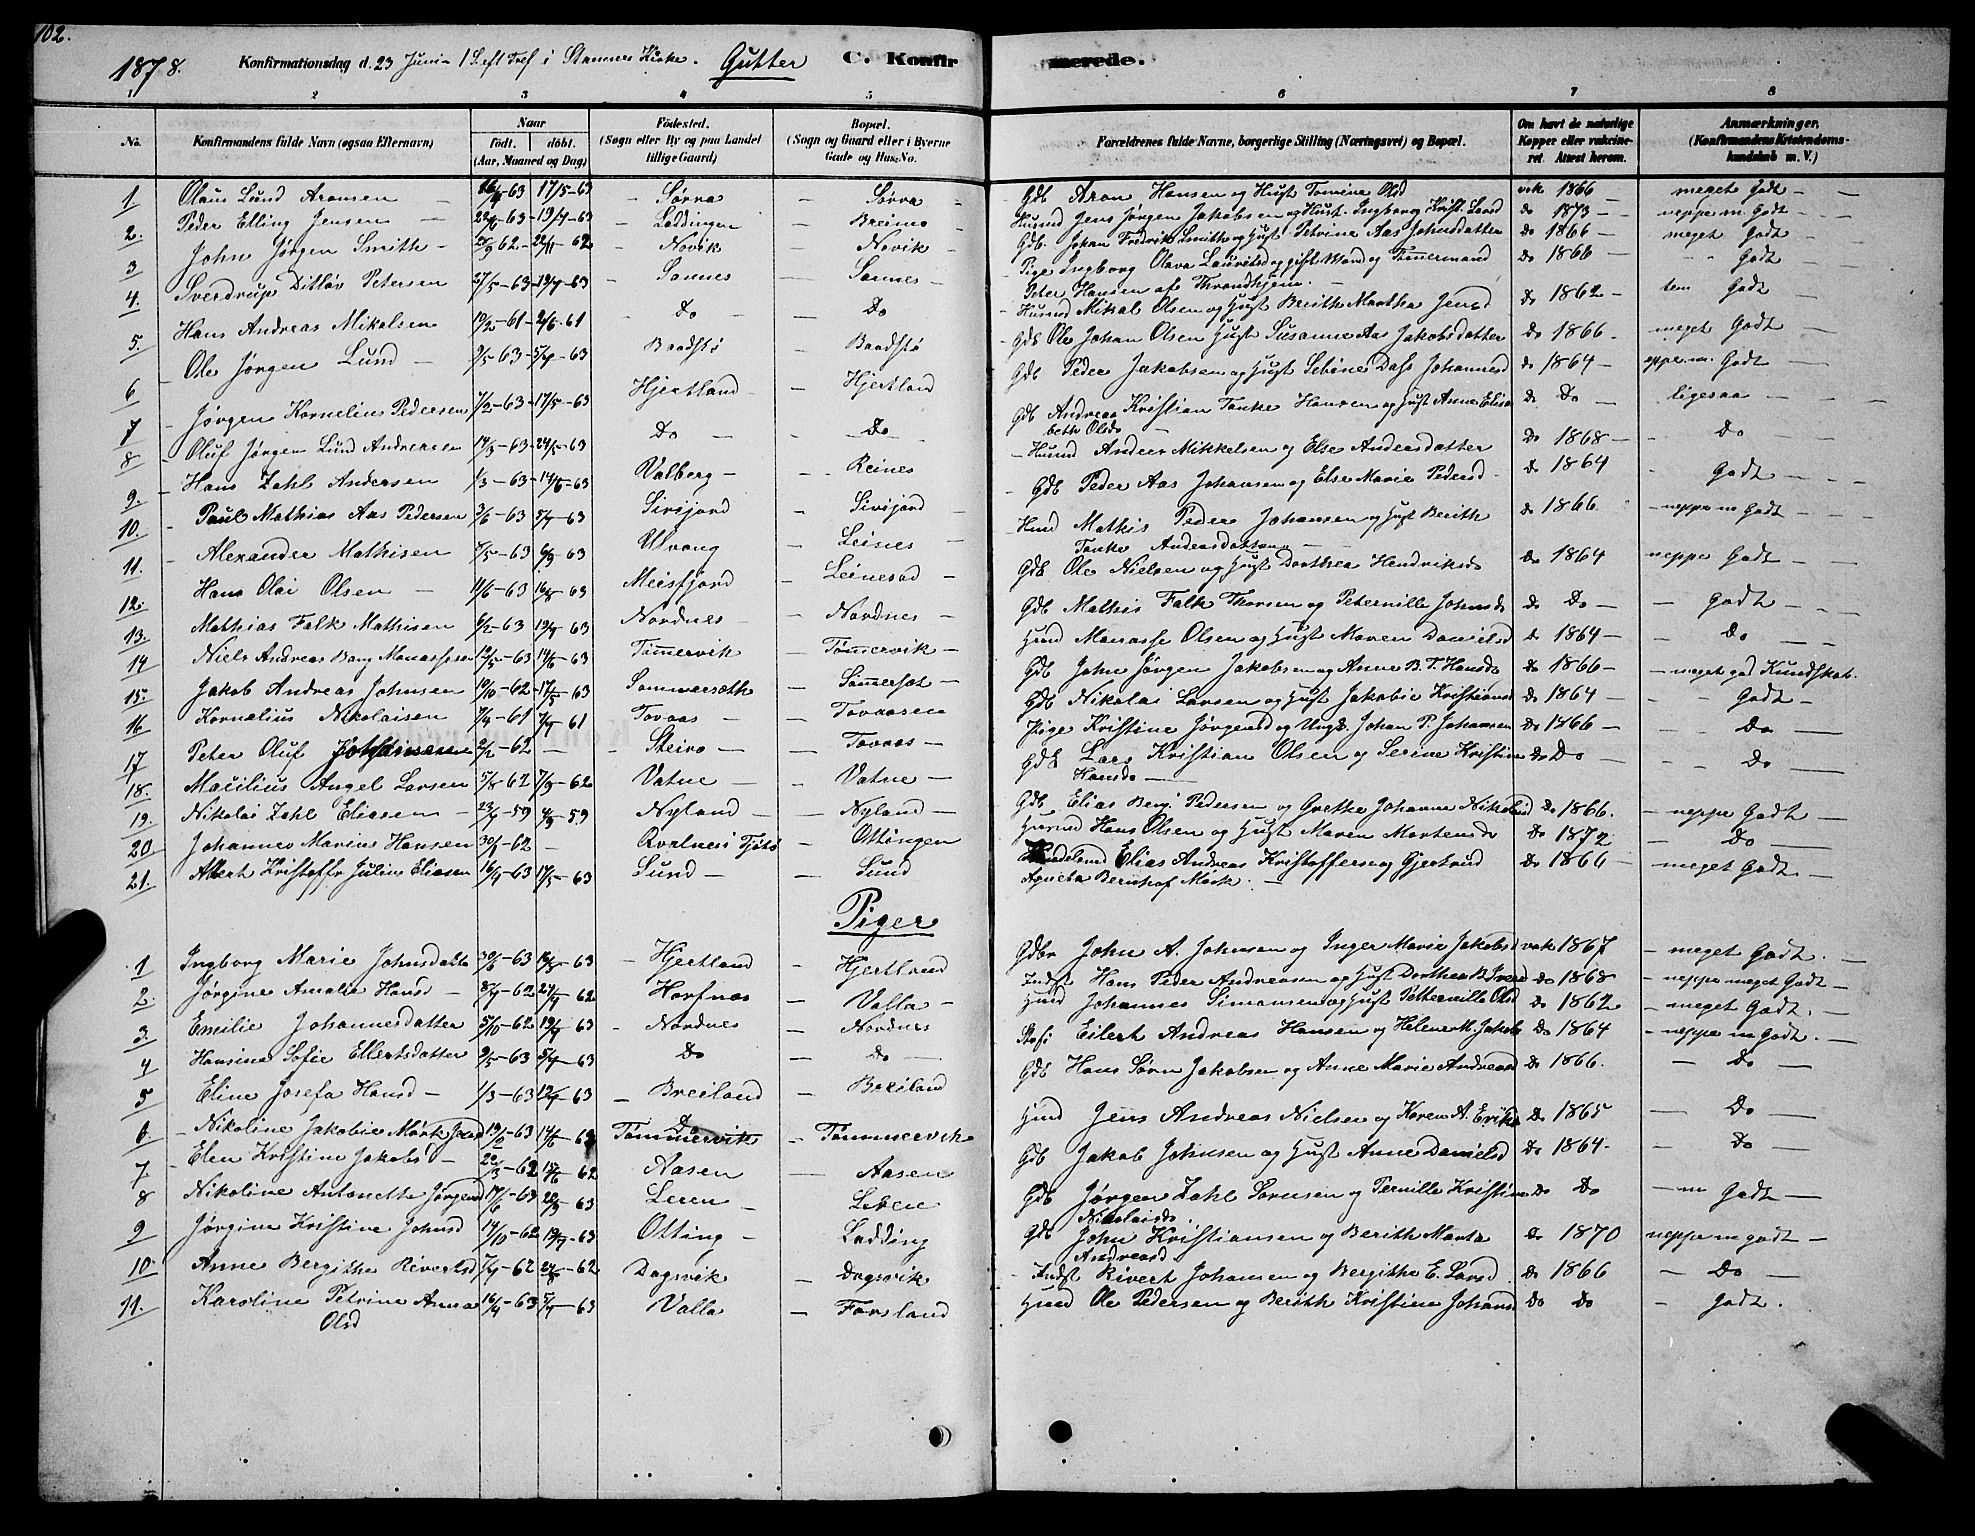 102.
1878. Konfirmationsdag d. 23 Juni i Stamnes Kirke. Gutter C. Konfirmerede.
1 2 3 4 5 6 7 8
No. Konfirmandens fulde Navn (ogsaa Efternavn) Naar født. døbt. (Aar, Maaned og Dag) Fødested. (Sogn eller By og paa Landet tillige Gaard) Bopæl. (Sogn og Gaard eller i Byerne Gade og Hus-No. Forældrenes fulde Navne, borgerlige Stilling (Næringsvei) og Bopæl. Om havt de naturlige Kopper eller vakcineret. Attest herom. Anmærkninger. (Konfirmandens Kristendomskundskab m. V.)
1 Olaus Lund Aronsen 63 17/5-63 Sørra Sørra Gdb Aron Hansen og Hust Tomine Olsd vak 1866 meget Godt
2. Peder Elling Jensen 63 19/4-63 Løddingen Breimo Husmd Jens Jørgen Jakobsen og Hust. Ingborg Krist. Larsd Do 1873 neppe m Godt
3 John Jørgen Smith 62 22/11-62 Novik Novik Gdb. Johan Fredrik Smith og Hust Petrine Aas Johnsdatter Do 1866 meget Godt
4. Sverdrup Ditløv Petersen 27/5-63 63 Sannes Sannes Pige Ingborg Olava Lauritsd og gift Mand og Tømmermand Do 1866 Godt
Peter Hansen af Throndhjem.
5. Hans Andreas Mikalsen 19/2-61 2/6-61 Do Do Husmd Mikal Olsen og Hust Berith Martha Jensd Do 1862 tem Godt
6 Ole Jørgen Lund 9/5-63 5/7-63 Baadstø Baadstø Gdb Ole Johan Olsen Hust Susanne Aas Jakobsdatter Do 1866 meget Godt
7 Jørgen Kornelius Pedersen 7/2-63 17/5-63 Hjertland Hjertland Gdb Peder Jakobsen og Hust Sebine Dass Johannesd Do 1864 neppe m. Godt
8 Oluf Jørgen Lund Andreasen 14/3-63 24/5-63 Do Do Gdb Andreas Kristian Tanke Hansen og Hust Anne Elisabeth Olsd Do Do ligesaa
9. Hans Zahl Andersen 1/3-63 14/6-63 Valberg Reines Husmd Anders Mikkelsen og Else Andersdatter Do 1868 Do
10. Paul Mathias Aas Pedersen 3/6-63 5/7-63 Sivijord Sivijord Gdb Peder Aas Johansen og Else Marie Pedersd Do 1864 Godt
11. Alexander Mathisen 7/5-63 6/9-63 Ulvang Leines Hmd Mathis Peder Johansen og Hust Berith Do 1866 neppe m Godt
Tanke Andersdatter
12. Hans Olai Olsen 11/6-63 16/8-63 Meisfjord Leinesod Gdb Ole Nielsen og Hust Dorthea Hendriksd Do 1864 neppe Godt
13. Mathias Falk Mathisen 6/2-63 63 Nordnes Nordnes Gdb Mathis Falk Thorsen og Peternille Johnsd Do Do Godt
14 Niels Andreas Bang Manassesen 12/5-63 14/6-63 Tømmervik Tømmervik Hmd Manasse Olsen og Hust Maren Danielsd Do 1864 Do
15. Jakob Andreas Johnsen 19/10-62 17/5-63 Sommersæth Sømmersæt Gdb John Jørgen Jakobsen og Anne B. T. Hansd Do 1866 meget god Kundskab.
16 Kornelius Nikolaisen 7/4-61 61 Tovaas Tovaasen Gdb Nikolai Larsen og Hust Jakobie Kristiansd Do 1864 Godt
17 Peter Oluf Johansen 9/2-62 Steiro Tovaas Pige Kristine Jørgensd og Ungk. Johan P. Johansen Do 1866 Do
18. Macilius Angel Larsen 5/8-62 7/9-62 Vatne Vatne Gdb Lars Kristian Olsen og Serine Kristine Hansd Do Do Do
19. Nikolai Zahl Eliasen 59 59 Nyland Nyland Gdb Elias Benj. Pedersen og Grethe Johanne Nikolaisd Do 1866. neppe Godt
20. Johannes Marius Hansen 62 Tjøtø Ottingen Husmd Hans Olsen og Hust Maren Mortensd Do 1872 Do
21. Albert Kristoffr Julius Eliasen 16/4-63 17/5-63 Sund Sund Elias Andreas Kristoffersen og Gjertrud Do 1866 meget Godt
Agneta Bernhof Mørk.
Piger
1 Ingborg Marie Johnsdatter 63 63 Hjertland Hjertland Gdbr John A. Johnsen og Inger Marie Jakobsd vak 1867 meget Godt.
2. Jørgine Amalie Hansd 62 62 Horfnæs Valla Indst Hans Peder Andreasen og Hust Dorthea B. Iversd Do 1868 neppe meget Godt
3. Emilie Johannesdatter 5/10-62 63 Nordnes Nordnes Hmd Johannes Simonsen og Hust Petternille Olsd Do 1862 meget Godt.
4 Hansine Sofie Ellertsdatter 9/5-63 5/7-63 Do Do Eilert Andreas Hansen og Helene M. Jakobs Do 1864 neppe m Godt.
5 Eline Josefa Hansd 1/3-63 63 Breiland Breiland Gdb Hans Sørn Jakobsen og Anne Marie Andreasd Do 1866. Do
6. Nikoline Jakobie Mørk Jensd 63 14/6-63 Do Tømmervik Tømmervik Hmd Jens Andreas Nielsen og Karen A. Eriks Do 1865 Do
7 Elen Kristine Jakobs 62 62 Aasen Aasen Gdb Jakob Johnsen og Hust Anne Danielsd Do 1864. Do
8 Nikoline Antonette Jørgensd 17/6-63 63 Leren Leren Gdb Jørgen Zahl Sørensen og Pernille Kristine Do Do m Godt
Nikolaisd.
9 Jørgine Kristine Johnsd 14/10-62 63 Otting Lødding Gdb John Kristiansen og Berith Marta Do 1870 neppe m godt
Andreasd
10. Anne Bergitha Rivertsd 62 62 Dagsvik Dagsvik Indst Rivert Johansen og Bergithe E. Larsd Do 1866 Do
11. Karoline Petrine Anna Olsd 16/4-63 63 Valla Forsland Hmd Ole Pedersen og Berith Kristine Johansd Do Do Godt.